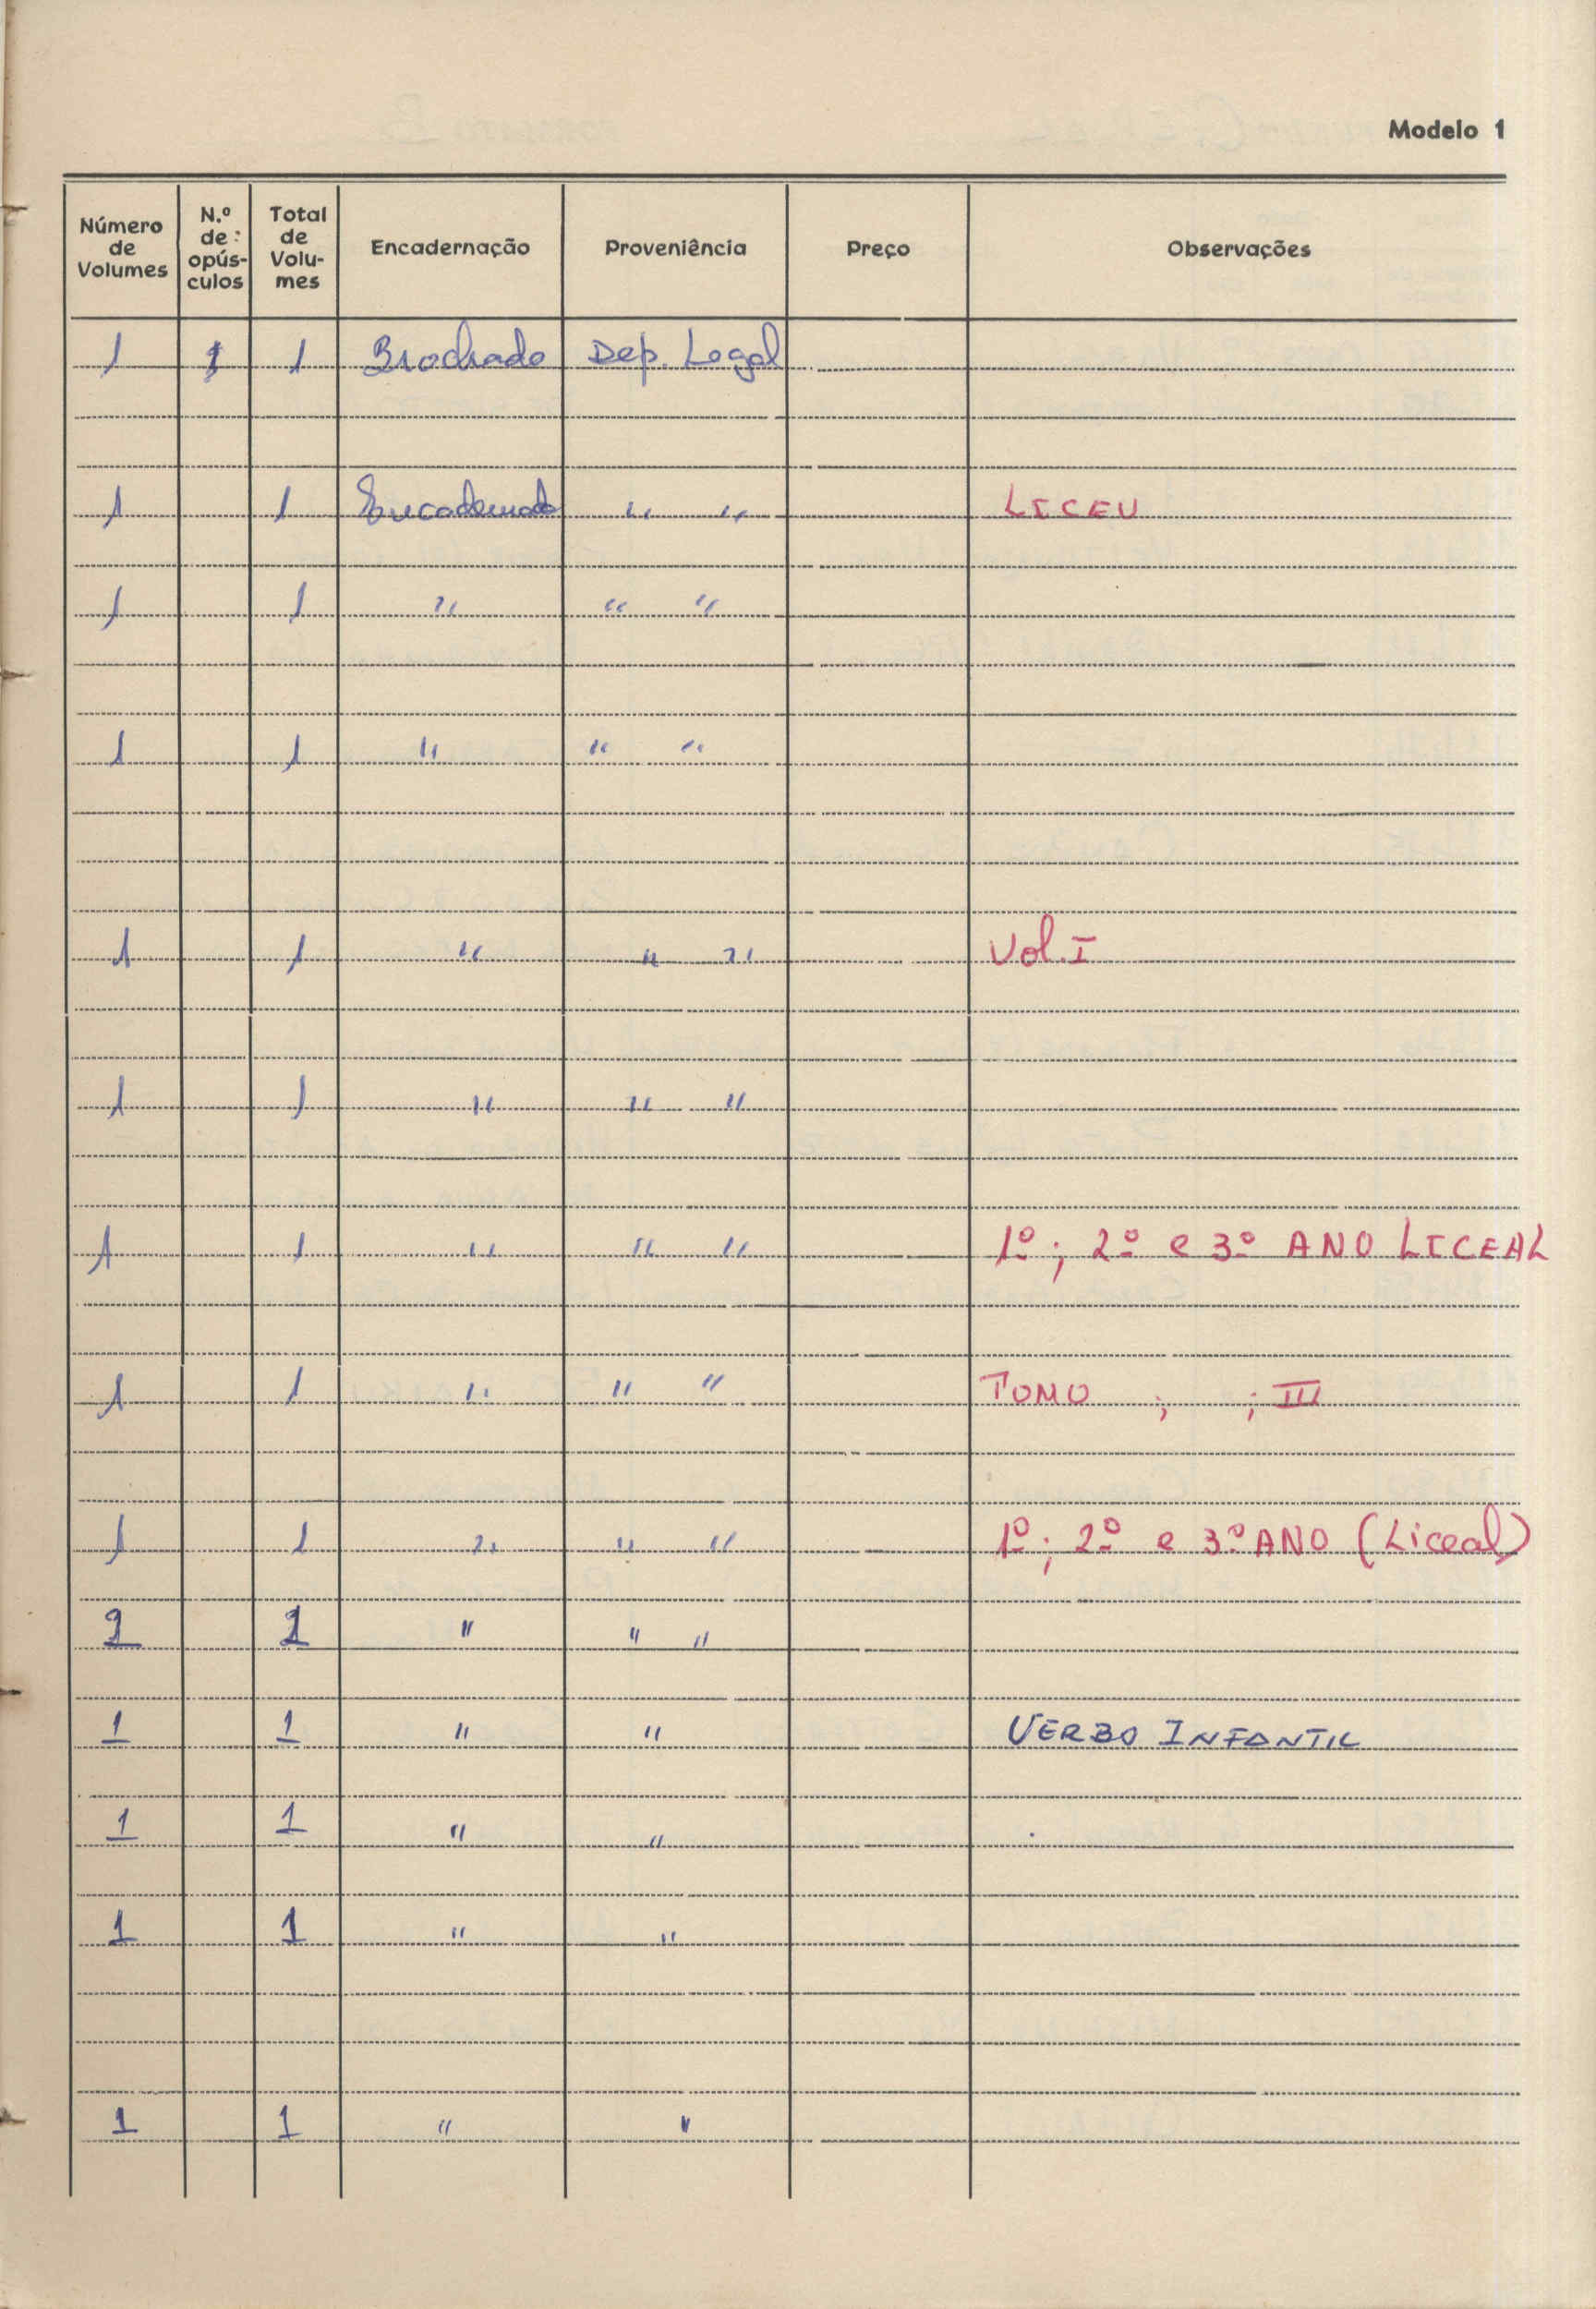 Modelo 1
Número de Volumes N.º de opús-culos Total de Volu-mes Encadernação Proveniência Preço Observações
1 1 1 Brochado Dep. Legal
1 1 Encadernado " " LICEU
1 1 " " "
1 1 " " "
1 1 " " " Vol. I
1 1 " " "
1 1 " " " 1º; 2º e 3º ANO LICEAL
1 1 " " " TOMO ; ; III
1 1 " " " 1º; 2º e 3º ANO (Liceal)
" " "
1 1 " " VERBO INFANTIL
1 1 " "
1 1 " "
1 1 " "